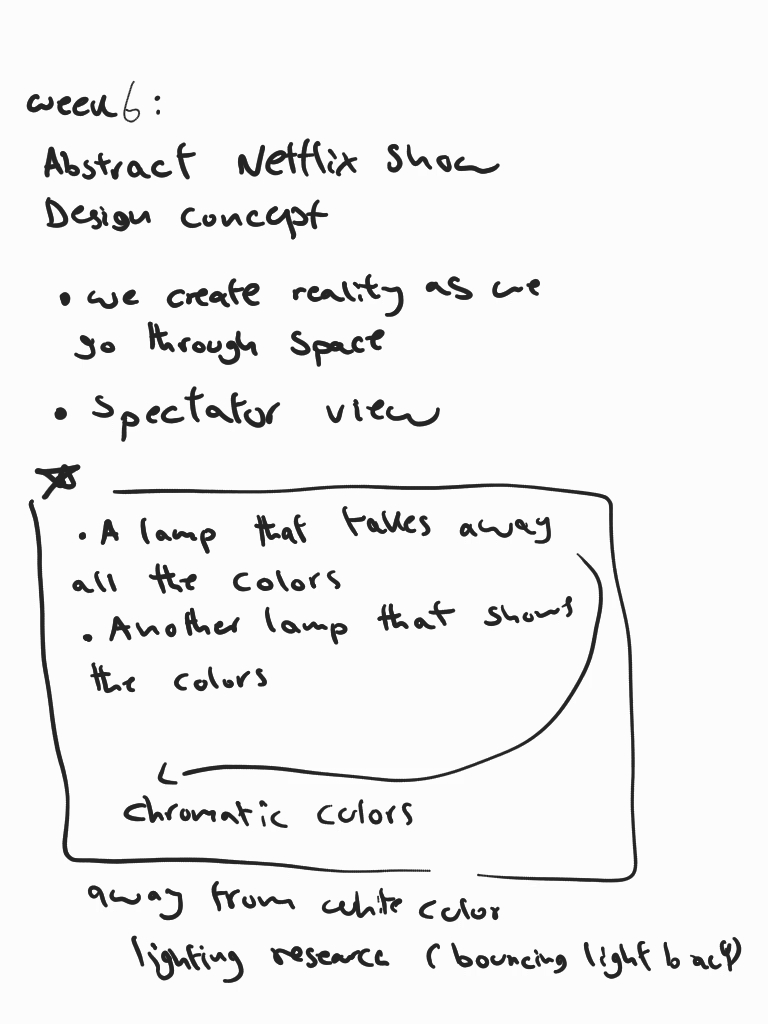 week 6:
Abstract Netflix Show
Design concept
• we create reality as we
go through space
• Spectator view
• A lamp that takes away
all the colors
• Another lamp that shows
the colors
chromatic colors
away from white color
lighting research (bouncing light back)